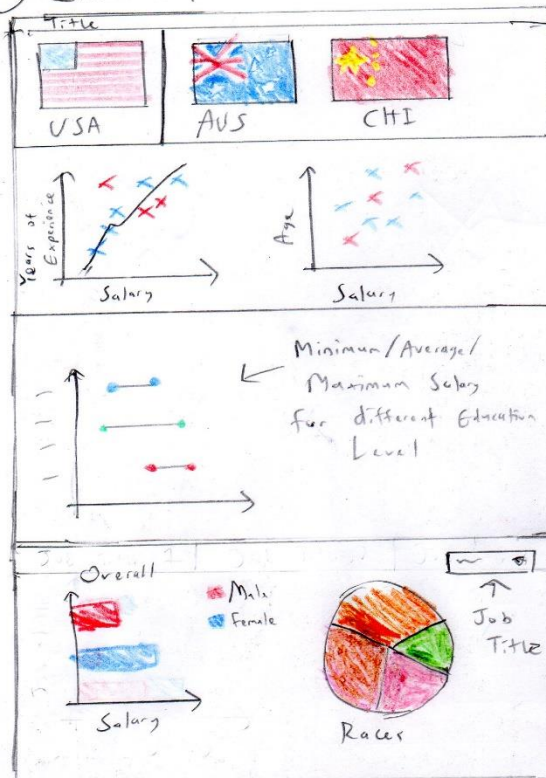 Title
USA
AUS
CHI
Years of
Experience
Salary
Age
Salary
Minimum/Average/
Maximum Salary
for different Education
Level
Overall
Male
Female
Salary
Races
Job
Title